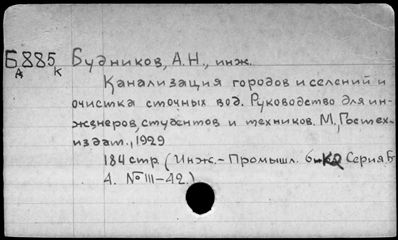 Б885 Будников, А.Н., инж.
А К
Канализация городов и селений и
очистка сточных вод. Руководство для ин-
женеров, студентов и техников. М., Гостех-
издат., 1929
184 стр. (Инж.- Промышл. Серия Б
А. № III-42.)